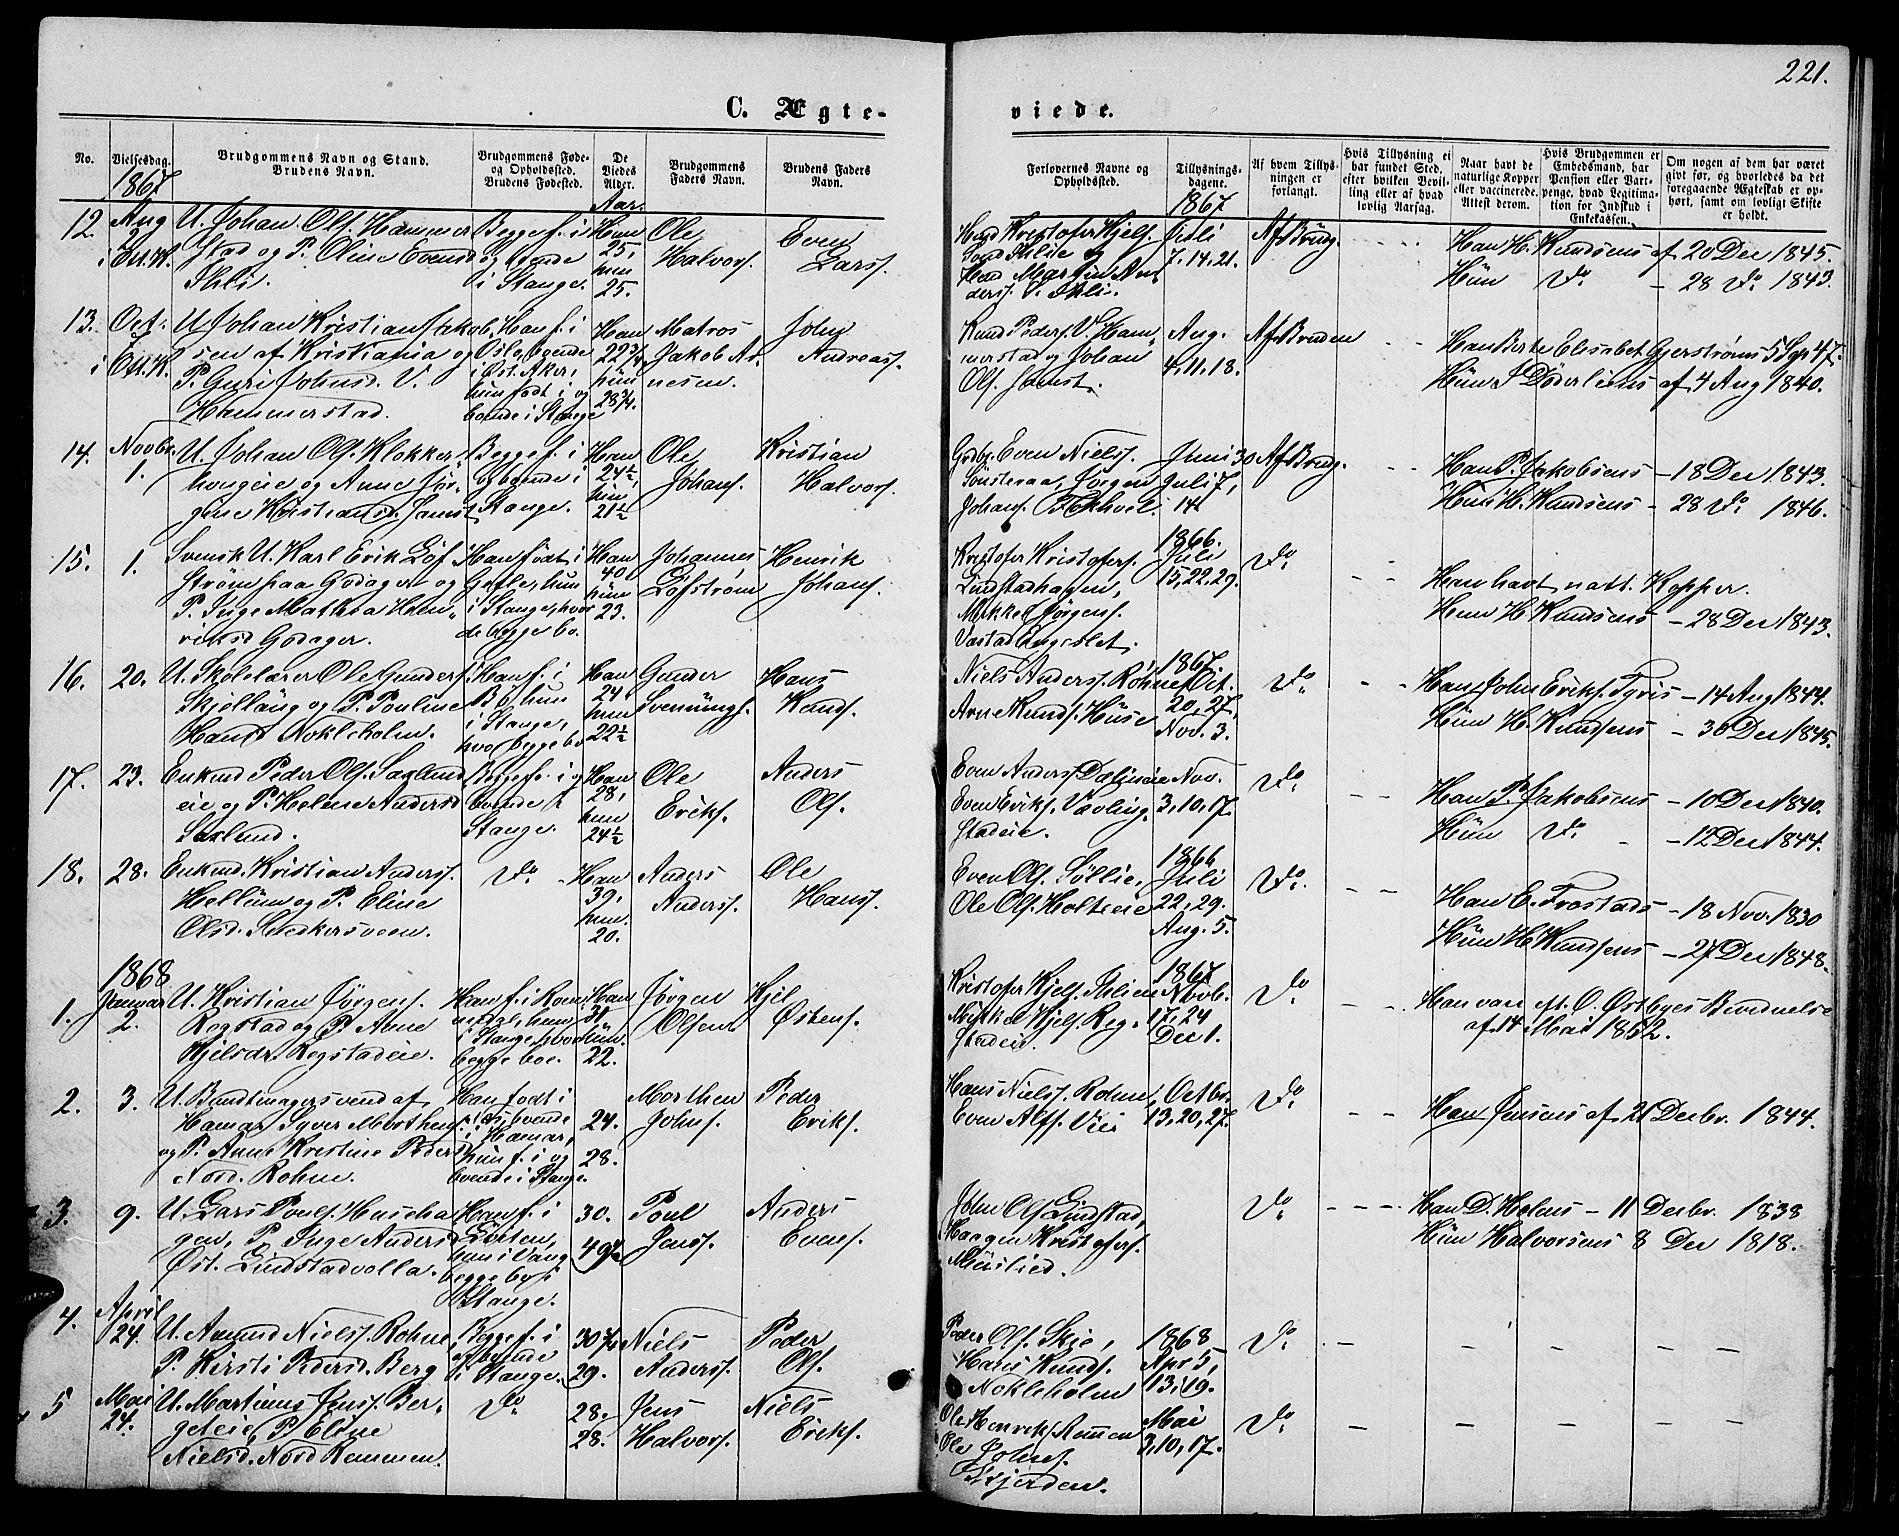 221.
C. Ægte-
viede.
No.
Vielsesdag.
Brudgommens Navn og Stand.
Brudens Navn.
Brudgommens Føde-
og Opholdssted.
Brudens Fødested.
De
Viedes
Alder.
Brudgommens
Faders Navn.
Brudens Faders
Navn.
Forlovernes Navne og
Opholdssted.
Tillysnings-
dagene.
Af hvem Tillys-
ningen er
forlangt.
Hvis Tillysning ei
har fundet Sted,
efter hvilken Bevil-
ling eller af hvad
lovlig Aarsag.
Naar havt de
naturlige Kopper
eller vaccinerede.
Attest derom.
Hvis Brudgommen er
Embedsmand, har
Pension eller Var-
penge, hvad Legitima-
tion for Indskud i
Enkekassen.
Om nogen af dem har været
givt før, og hvorledes da det
foregaaende Ægteskab er op-
hørt, samt om lovligt Skifte
er holdt.
1867
Aar.
1867
12.
Aug
2
U. Johan Ols. Hammer
stad og P. Oline Evensd
Ihli.
Begge f. i
og boende
i Stange.
Han
25,
hun
25.
Ole
Halvors.
Even
Lars.
Kristofer Kjels.
Ihlie og
Martin An
ders. Ihli.
Juli
7. 14. 21.
Af Brudg.
Han H. Knudsens af 20 Dec 1845.
Hun Do - 28 Do 1843.
13.
Oct.
U Johan Kristian Jakob
sen af Kristiania og
P. Guri Johnsd. V.
Hammerstad.
Han f. i
Oslo, boende
i Øst. Aker,
hun født i og
boende i Stange
Han
22 3/4
hun
28 3/4.
Matros
Jakob Ar
nesen.
John
Andreas.
Knud Peders. V. Ham
merstad og Johan
Ols. Jemst.
Aug.
4, 11, 18.
Af Bruden
Han Berte Elisabet Gjerstrøms 5 Sp. 47.
Hun S Døderleins af 4 Aug 1840.
14.
Novbr.
1.
U. Johan Ols. Klokker-
haugeie og Anne Jør-
gine Kristiansd. Jemst
Begge f. i
og boende i
Stange.
Han
24 1/2,
hun
21 1/2
Ole
Johans.
Kristian
Halvors.
Grdbr. Even Niels.
Sønsteraa, Jørgen
Johans.
Juni 30
Juli 7,
14
Af Brudg.
Han P. Jakobsens - 18 Dec 1843.
Hun H. Knudsens - 28 Do 1846.
15.
1.
Svensk U. Karl Erik Løf
strøm paa Godager og
P. Inge Mathea Hen-
riksd Godager.
Han født i
Gefle, hun
i Stange, hvor
de begge bo.
Han
40,
hun
23.
Johannes
Løfstrøm
Henrik
Johans.
Kristofer Kristofers.
Lindstadhagen,
Mikkel Jørgens.
1866.
Juli
15, 22, 29.
Do
Han havt natl. Kopper.
Hun H Knudsens - 28 Dec 1843.
16.
20.
U. Skolelærer Ole Gunders.
Skjellaug og P. Pouline
Hansd Nokleholm.
Han f. i
Bø, hun
i Stange,
hvor begge bo
Han
24,
hun
22 1/2
Gunder
Svennungs.
Hans
Knuds.
Niels Anders. Rohne,
Arne Knuds. Huse
1867
Oct.
20, 27,
Nov. 3.
Do
Han John Eriks. Tyris - 14 Aug 1844.
Hun H. Knudsens - 30 Dec 1845.
17.
23.
Enkmd Peder Ols. Saxlund
eie og P. Helene Andersd
Saxlund.
Begge f. i og
boende i
Stange.
Han
28,
hun
24 1/2
Ole
Eriks.
Anders
Ols.
Even Anders Dælineie
Even Eriks. Vavling-
stadeie.
Nov.
3, 10, 17.
Do
Han P. Jakobsens - 10 Dec 1840.
Hun Do - 12 Dec 1844.
18.
28.
Enkmd. Kristian Anders.
Hellum og P. Eline
Olsd. Snedkersveen.
Do
Han
39,
hun.
20.
Anders
Anders.
Ole
Hans.
Even Ols. Søllie,
Ole Ols. Holteeie
1866
Juli
22, 29.
Aug. 5.
Do
Han E. Frostads - 18 Nov. 1830
Hun H. Knudsens - 27 Dec 1848.
1868
1.
Januar
2.
U. Kristian Jørgens.
Rogstad og P. Anne
Kjelsdr. Rogstadeie.
Han f. i Rom
, hun
i Stange, hvor
begge boe.
Han
31
hun.
22.
Jørgen
Olsen
Kjel
Østens.
Kristofer Kjels. Ihlien
Mikkel Kjels. Rog-
stadeie.
1867
Novb.
17, 24
Dec 1.
Do
Han vacc. eft. O. Østbyes Bevidnelse
af 14 Mai 1852.
2.
3.
U. Bundtmagersvend af
Hamar Syver Morthens.
og P. Anne Kristine Peders
Nord. Rohne.
Han født i
, boende
i Hamar,
hun f. i og
boende i Stange.
24.
28.
Morthen
Johns.
Peder
Eriks.
Hans Niels. Rohne,
Even Alfs. Vie
Octbr.
13, 20, 27.
Do
Han Jensens af 21 Decbr. 1844.
3.
9.
U. Lars Pouls. Huseha
gen, P. Inge Andersd
Øst. Lindstadvolla.
Han f. i
Løiten,
hun i Vang
begge bo i
Stange.
30.
49 1/2
Poul
Jens.
Anders
Evens.
John Ols Lindstad,
Haagen Kristofers.
Muslied.
Do
Han D. Holms - 11 Decbr. 1838
Hun Halvorsens 8 Dec 1818.
4.
April
24.
U. Amund Niels. Rohne,
P. Kirsti Pedersd. Berg
Begge f. i
og boende
i Stange.
30 3/4
29.
Niels
Anders.
Peder
Ols.
Peder Ols. Skie,
Hans Knuds.
Nokleholm
1868
Apr 5,
13, 19.
Do
5
Mai
24.
U. Martinus Jens. Ber-
geteie, P. Eline
Nielsd. Nord Remmen.
Do
28.
28.
Jens
Halvors.
Niels
Eriks.
Ole Henriks. Remmen
Ole Johns.
Gjerden.
Mai
3, 10, 17.
Do